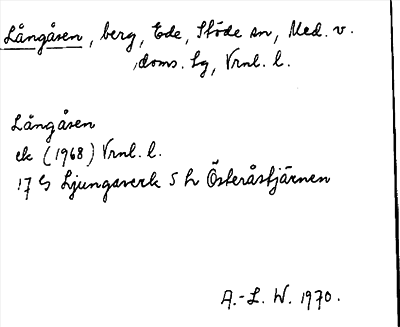 Långåsen, berg, Ede, Stöde sn, Med. v.
doms. hg, Vrnl. l.
Långåsen
ek (1968) Vrnl. l.
17 G Ljungaverk 5 h Österåstjärnen
A.-L. W. 1970.